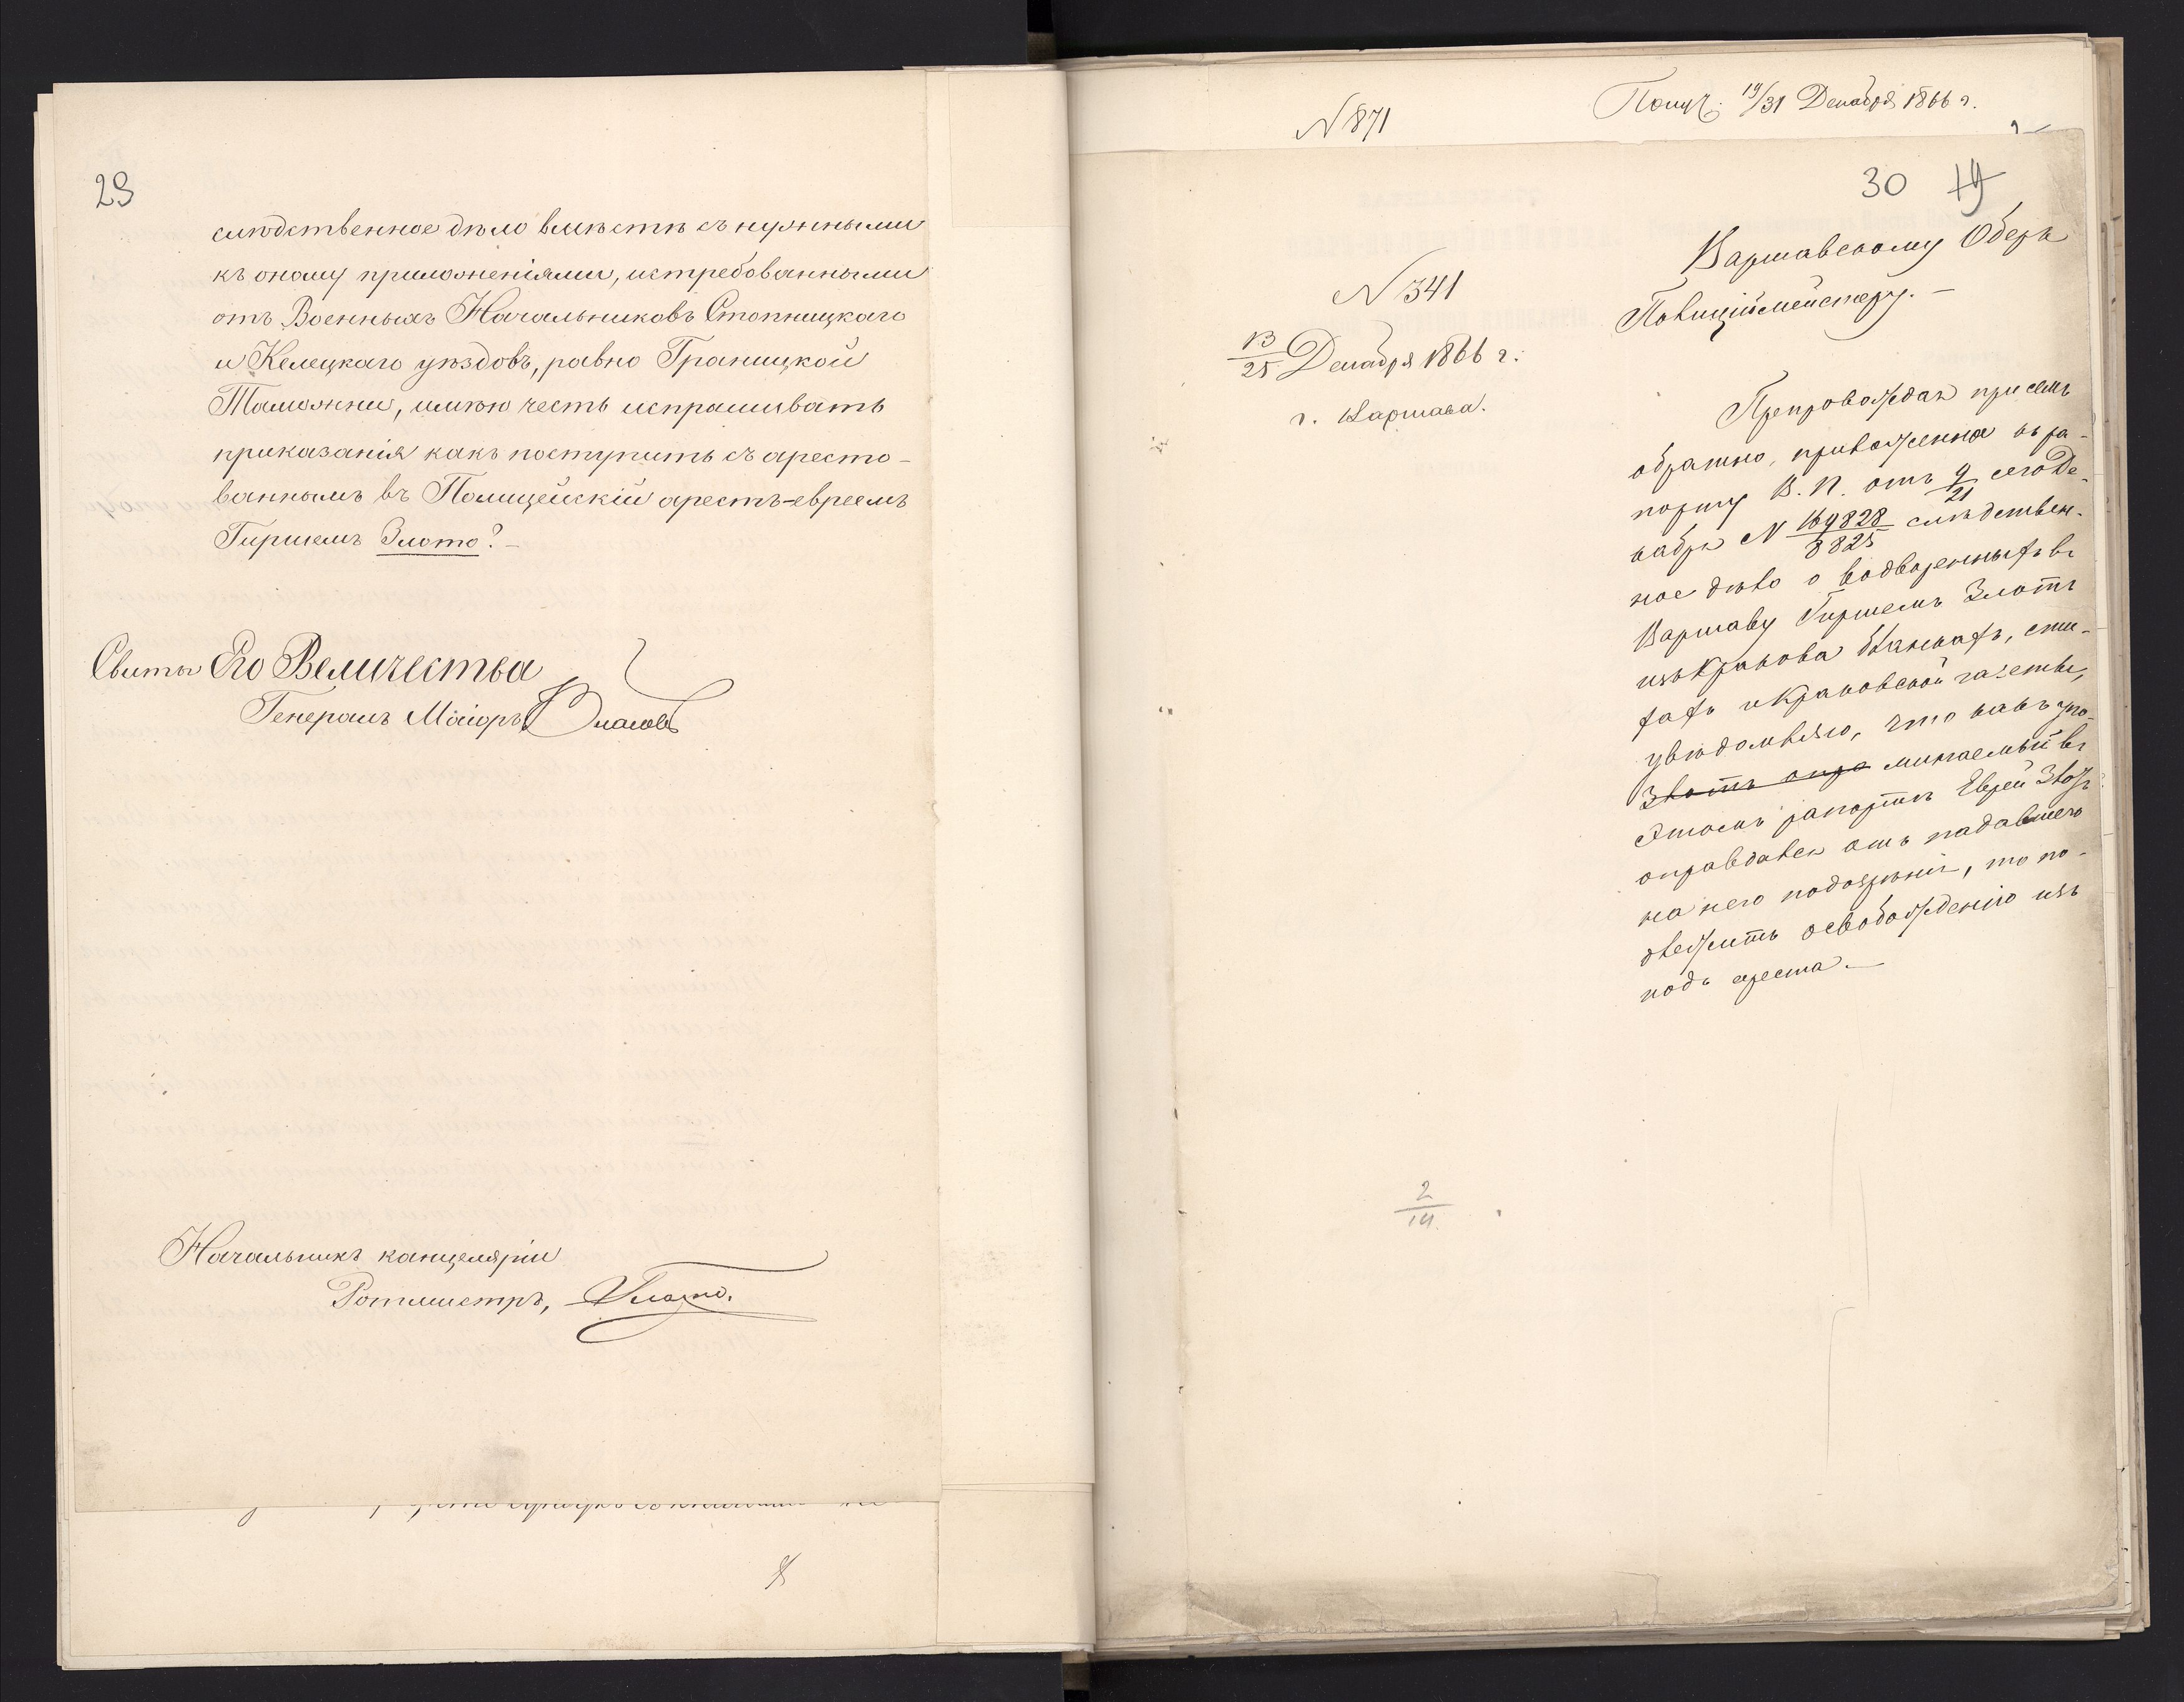 29
слѣдственное дѣло вмѣстѣ съ нужными
къ оному приложеніями, истребованными
отъ Военныхъ Начальниковъ Стопницкаго
и Келецкаго уѣздовъ, равно Границкой
Таможни, имѣю честь испрашивать
приказанія какъ поступить съ аресто-
ваннымъ въ Полицейскій арестъ-евреемъ
Гиршемъ Злото?-
Свиты Его Величества
Генералъ Маіоръ Власовъ
Начальникъ канцеляріи
Ротмистръ,
N 871
Получ. 19/31 Декабря 1866 г.
30 19
N 341
13/25 Декабря 1866 г.
г. Варшава.
Варшавскому Оберъ
Полиціймейстеру.-
Препровождая при семъ
обратно, приложенное къ ра-
порту В. П. отъ 9/21 сего Де-
кабря N 169828/8825 слѣдствен-
ное дѣло о водворенныхъ въ
Варшаву Гиршемъ Злотъ
изъ Кракова бланкахъ, сти-
хахъ и Краковской газеты,
увѣдомляю, что какъ упо-
Злотъ опра минаемый въ
этомъ рапортѣ Еврей Злотъ
оправдался отъ падавшего
на него подозрѣнія, то по-
длежитъ освобожденію изъ
подъ ареста.-
2/14